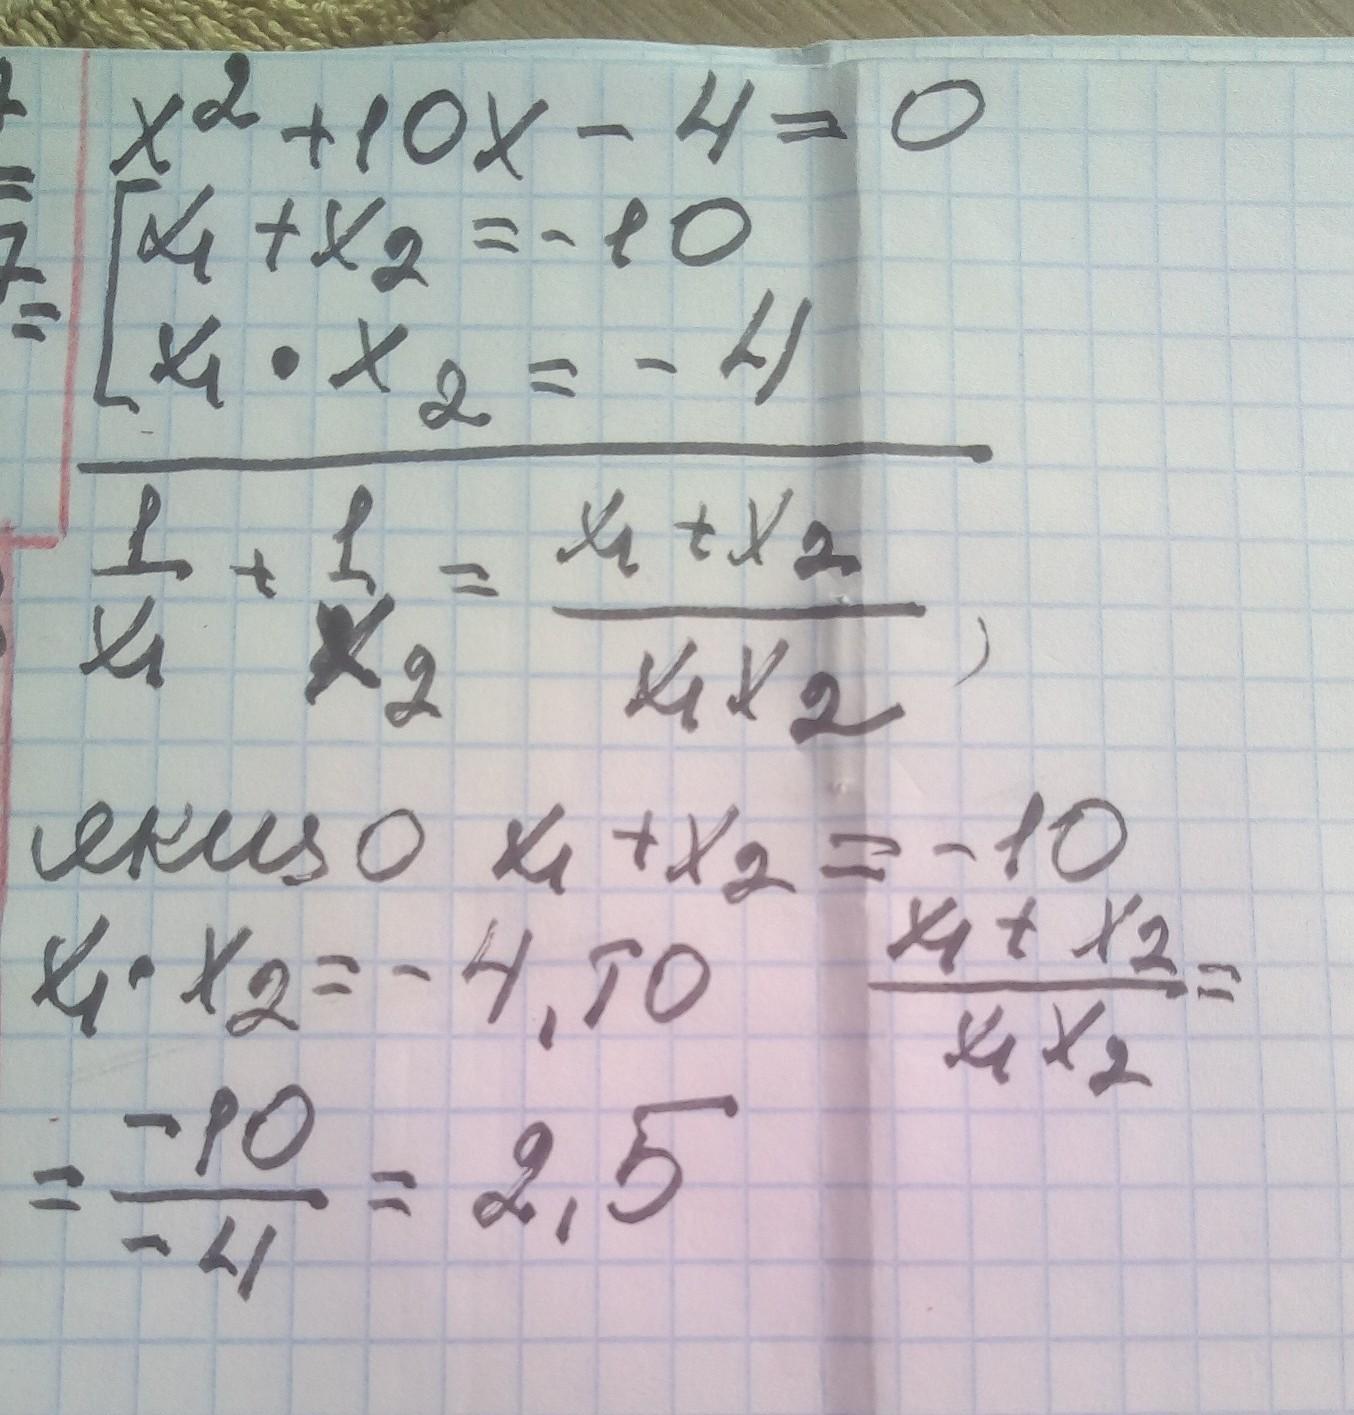 x² + 10x - 4 = 0
x₁ + x₂ = -10
x₁ · x₂ = -4
1/x₁ + 1/x₂ = (x₁ + x₂)/(x₁x₂),
якщо x₁ + x₂ = -10
x₁ · x₂ = -4, то (x₁ + x₂)/(x₁x₂) =
= -10/-4 = 2,5